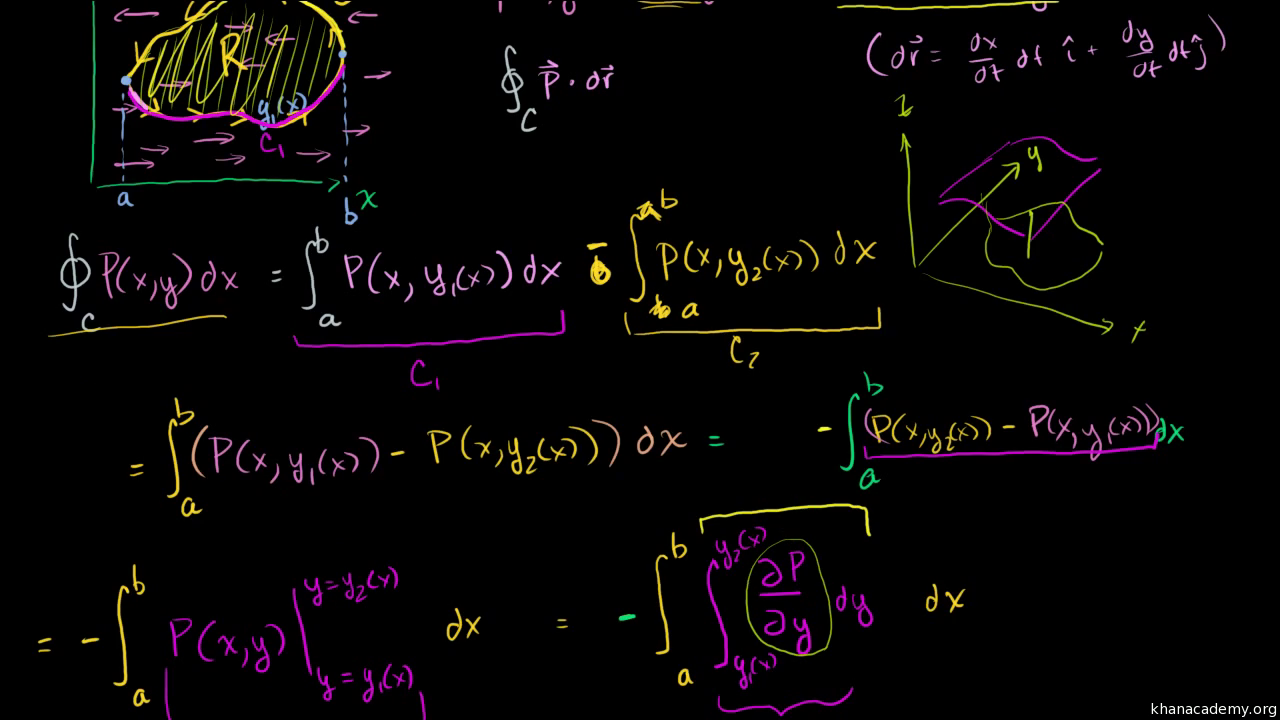 R
y₁(x)
C₁
a
b
x
∮_C P⃗ · dr⃗
(dr⃗ = dx/dt dt î + dy/dt dt ĵ)
z
y
x
∮_C P(x,y) dx = ∫_a^b P(x, y₁(x)) dx - ∫_a^b P(x, y₂(x)) dx
C₁
C₂
= ∫_a^b (P(x, y₁(x)) - P(x, y₂(x))) dx = - ∫_a^b (P(x, y₂(x)) - P(x, y₁(x))) dx
= - ∫_a^b P(x,y) |_{y = y₁(x)}^{y = y₂(x)} dx = - ∫_a^b ∫_{y₁(x)}^{y₂(x)} ∂P/∂y dy dx
khanacademy.org